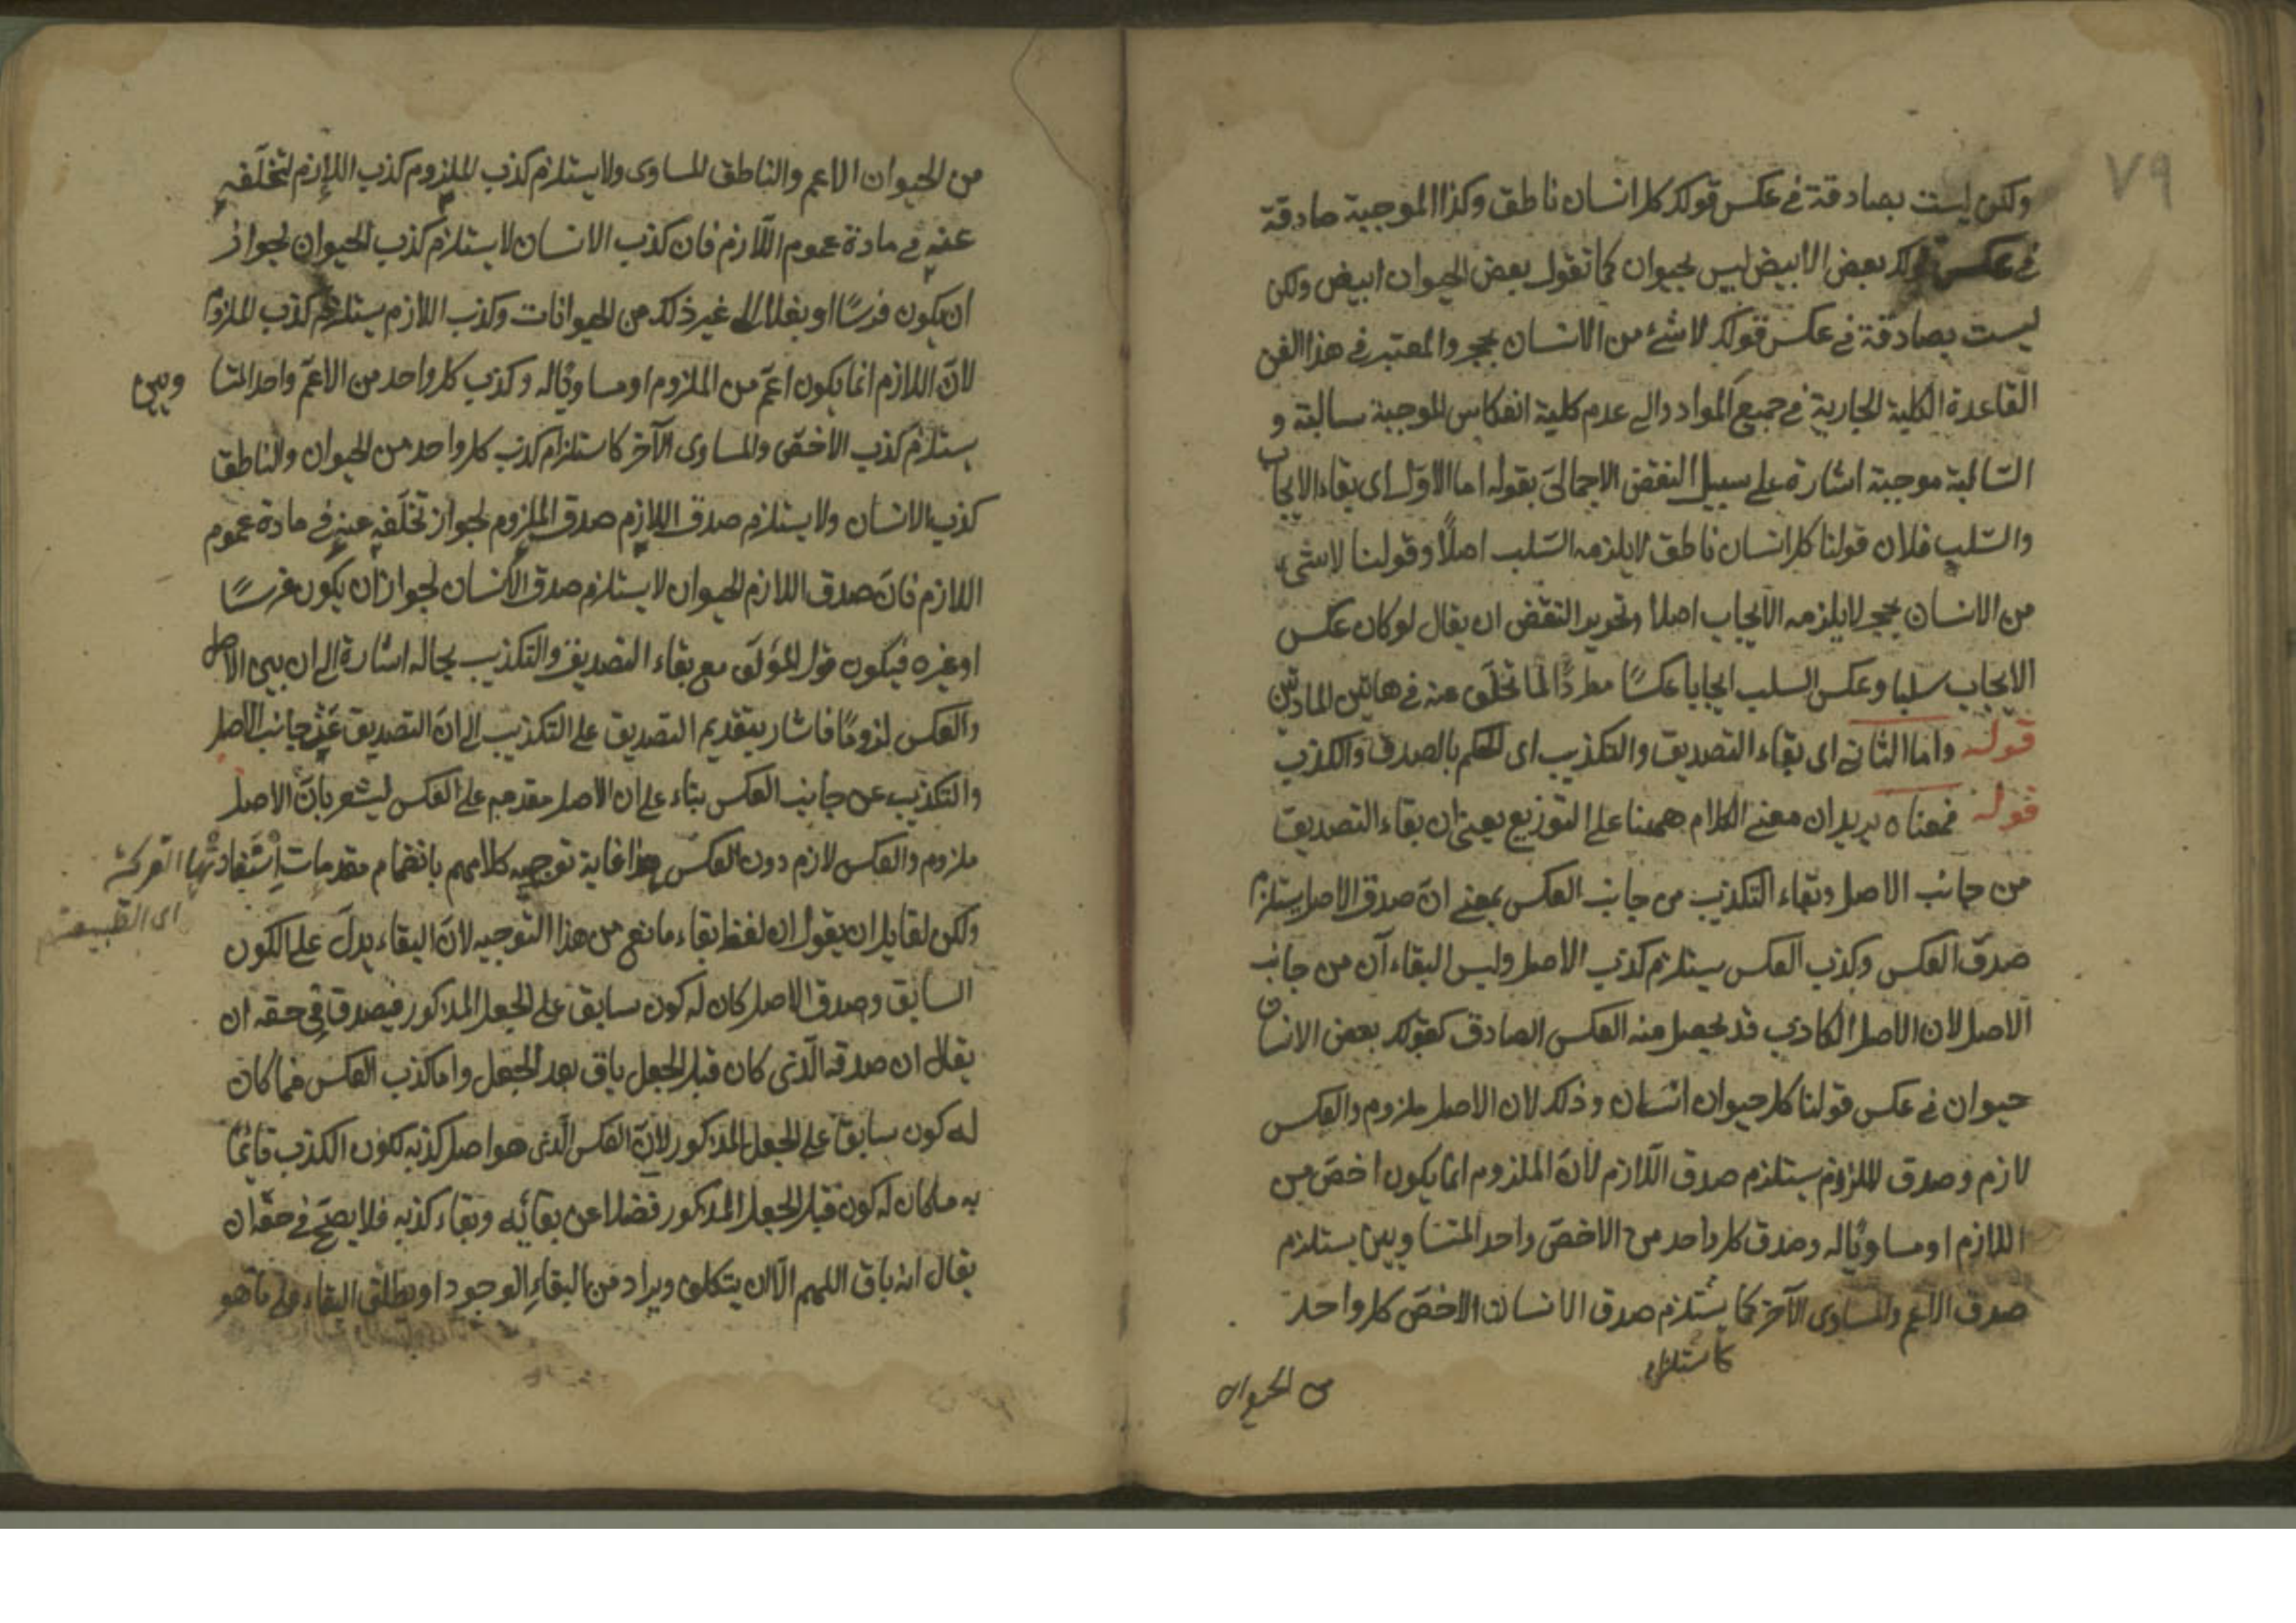 ٧٩
ولكن ليست بصادقة فى عكس قولك كل انسان ناطق وكذا الموجبة صادقة
فى عكس قولك بعض الابيض ليس بحيوان كما تقول بعض الحيوان ابيض ولكن
ليست بصادقة فى عكس قولك لا شئ من الانسان بحجر والمعتبر فى هذا الفن
القاعدة الكلية الجارية فى جميع المواد والى عدم كلية انعكاس الموجبة سالبة و
السّالبة موجبة اشارة على سبيل النقض الاجمالى بقوله اما الاوّل اى بقاء الايجاب
والسّلب فلان قولنا كل انسان ناطق لا يلزمه السّلب اصلاً وقولنا لا شئ
من الانسان بحجر لا يلزمه الايجاب اصلا وتحرير النقض ان يقال لو كان عكس
الايجاب سلبا وعكس السلب ايجابا عكسًا مطردًا لما تخلّف عنه فى هاتين المادتين
قوله واما الثانى اى بقاء التصديق والتكذيب اى الحكم بالصدق والكذب
قوله فمعناه يريد ان معنى الكلام ههنا على التوزيع يعنى ان بقاء التصديق
من جانب الاصل وبقاء التكذيب من جانب العكس بمعنى انّ صدق الاصل يستلزم
صدق العكس وكذب العكس يستلزم كذب الاصل وليس البقاءآن من جانب
الاصل لان الاصل الكاذب قد يحصل منه العكس الصادق كقولك بعض الانسان
حيوان فى عكس قولنا كل حيوان انسان وذلك لان الاصل ملزوم والعكس
لازم وصدق الملزوم يستلزم صدق اللّازم لانّ الملزوم انما يكون اخصّ من
اللازم او مساويًا له وصدق كل واحد من الاخصّ واحد المتساويين يستلزم
صدق الاعم والمساوى الآخر كما يستلزم صدق الانسان الاخصّ كل واحد
كاستلزام
من الحيوان
من الحيوان الاعم والناطق المساوى ولا يستلزم كذب الملزوم كذب اللازم لتخلّفه
عنه فى مادة عموم اللّازم فان كذب الانسان لا يستلزم كذب الحيوان لجواز
ان يكون فرسًا او بغلا الى غير ذلك من الحيوانات وكذب اللازم يستلزم كذب الملزوم
لانّ اللازم انما يكون اعمّ من الملزوم او مساويًا له وكذب كل واحد من الاعمّ واحد المتسا ويين
يستلزم كذب الاخصّ والمساوى الآخر كاستلزام كذب كل واحد من الحيوان والناطق
كذب الانسان ولا يستلزم صدق اللازم صدق الملزوم لجواز تخلّفه عنه فى مادة عموم
اللازم فانّ صدق اللازم الحيوان لا يستلزم صدق الانسان لجواز ان يكون فرسًا
او غيره فيكون قول المؤلّف مع بقاء التصديق والتكذيب بحاله اشارة الى ان بين الاصل
والعكس لزومًا فاشار بتقديم التصديق على التكذيب الى انّ التصديق عن جانب الاصل
والتكذيب عن جانب العكس بناء على ان الاصل مقدم على العكس ليشعر بانّ الاصل
ملزوم والعكس لازم دون العكس هذا غاية توجيه كلامهم بانضمام مقدمات
اى الطبيعة
ولكن لقايل ان يقول ان لفظ بقاء مانع من هذا التوجيه لانّ البقاء يدلّ على الكون
السابق وصدق الاصل كان له كون سابق على الجعل المذكور فيصدق فى حقه ان
يقال ان صدقه الّذى كان قبل الجعل باق بعد الجعل واما كذب العكس فما كان
له كون سابق على الجعل المذكور لانّ العكس الّذى هو اصل كذبه لكون الكذب قائمًا
به ما كان له كون قبل الجعل المذكور فضلا عن بقائه وبقاء كذبه فلا يصحّ فى حقه ان
يقال انه باق اللهم الّا ان يتكلف ويراد من البقاء الوجود او يطلق البقاء على ما هو